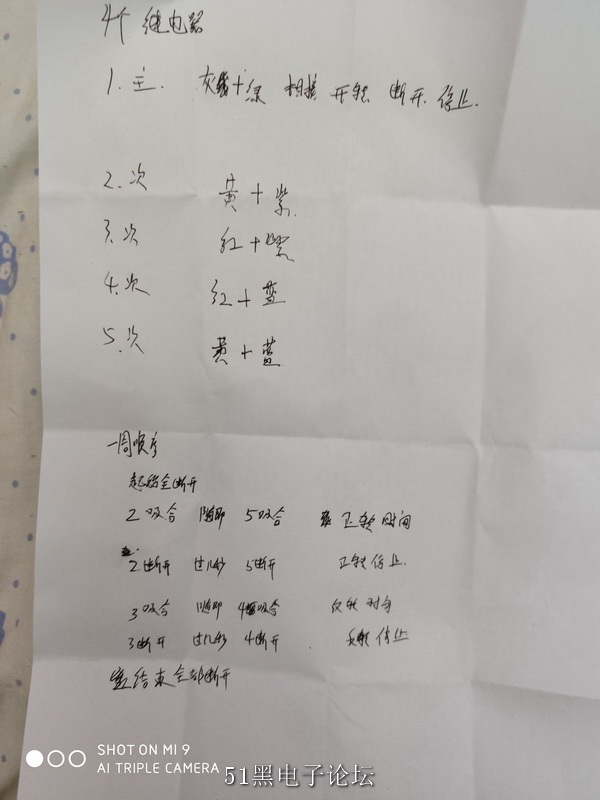 4个 继电器
1. 主. 灰线+绿 相接 开转 断开 停止.
2. 次 黄+紫.
3. 次 红+紫
4. 次 红+蓝
5. 次 黄+蓝
一周顺序
起始全断开
2吸合 随即 5吸合 正转时间
2断开 过几秒 5断开 正转停止.
3吸合 随即 4吸合 反转时间
3断开 过几秒 4断开 反转停止
结束全部断开
SHOT ON MI 9
AI TRIPLE CAMERA
51黑电子论坛